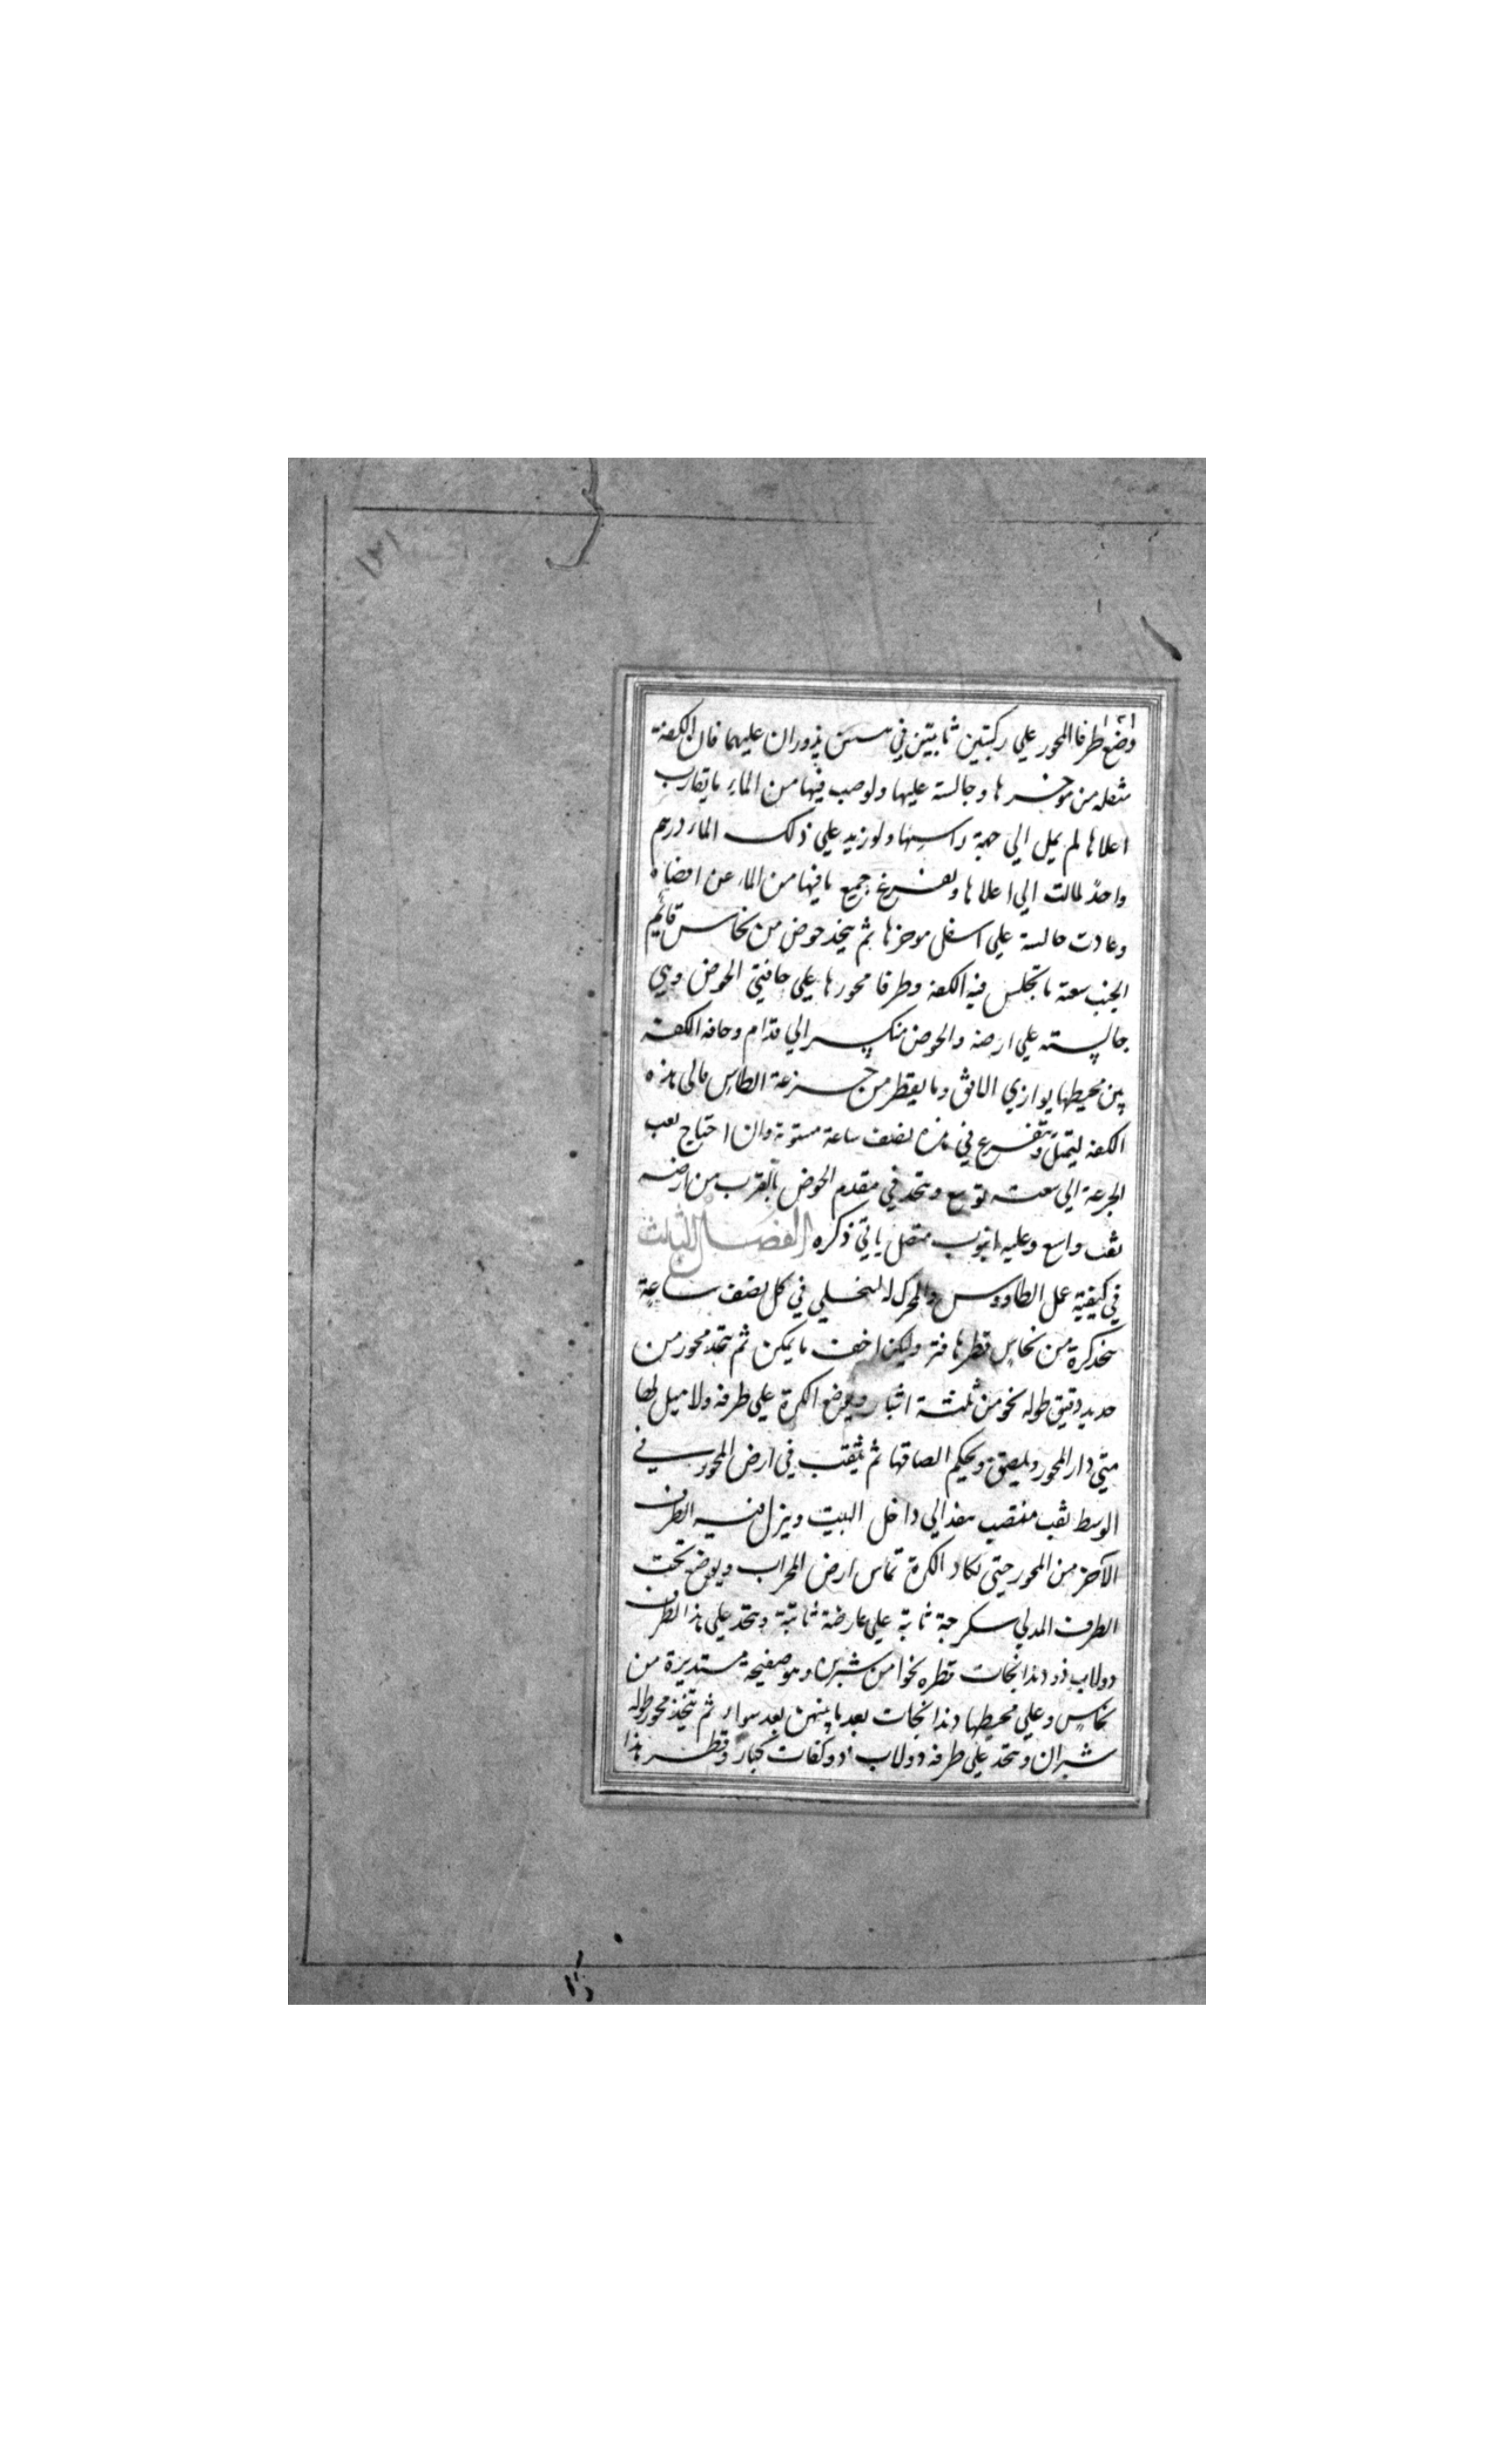 ١٣١
وضع طرفا المحور علي ركبتين ثابتتين في سستن يدوران عليهما فان الكفة
مثقلة من موخرها وجالسة عليها ولو صب فيها من الماء ما يقارب
اعلاها لم يمل الي جهة راسها ولو زيد علي ذلك الماء درهم
واحد لمالت الي اعلاها وتفرغ جميع ما فيها من الماء عن اقصاه
وعادت جالسة علي اسفل موخرها ثم يتخذ حوض من نحاس قايم
الجنب سعة ما تجلس فيه الكفة وطرفا محورها علي حافتي الحوض وهي
جالسة علي ارضه والحوض منكسر الي قدام وحافه الكفة
بين محيطها يوازي الافق وما يقطر من جزعة الطاس مالي هذه
الكفة ليمتلي ويتفرغ في مدة نصف ساعة مستوية وان احتاج ثقب
الجزعة الي سعة توسع ويتخذ في مقدم الحوض بالقرب من ارضه
ثقب واسع وعليه انبوب متصل ياتي ذكره الفصل الثالث
في كيفية عمل الطاووس والمحرك له المتخلي في كل نصف ساعة
يتخذ كرة من نحاس قطرها فتر وليكن اخف ما يمكن ثم يتخذ محور من
حديد دقيق طوله نحو من ثلثة اشبار ويوضع الكرة علي طرفه ولا ميل لها
متي دار المحور ويلصق ويحكم الصاقها ثم يثقب في ارض المحور في
الوسط ثقب منتصب ينفذ الي داخل البيت وينزل فيه الطرف
الآخر من المحور حتي تكاد الكرة تماس ارض المحراب ويوضع تحت
الطرف المدلي سكرجة ثابتة علي عارضة ثابتة ويتخذ علي هذا الطرف
دولاب ذو دندانجات قطره نحوا من شبرين وهو صفيحة مستديرة من
نحاس وعلي محيطها دندانجات بعد ما بينهن بعد سواء ثم يتخذ محور طوله
شبران ويتخذ علي طرفه دولاب ذو كفات كبار وقطر هذا